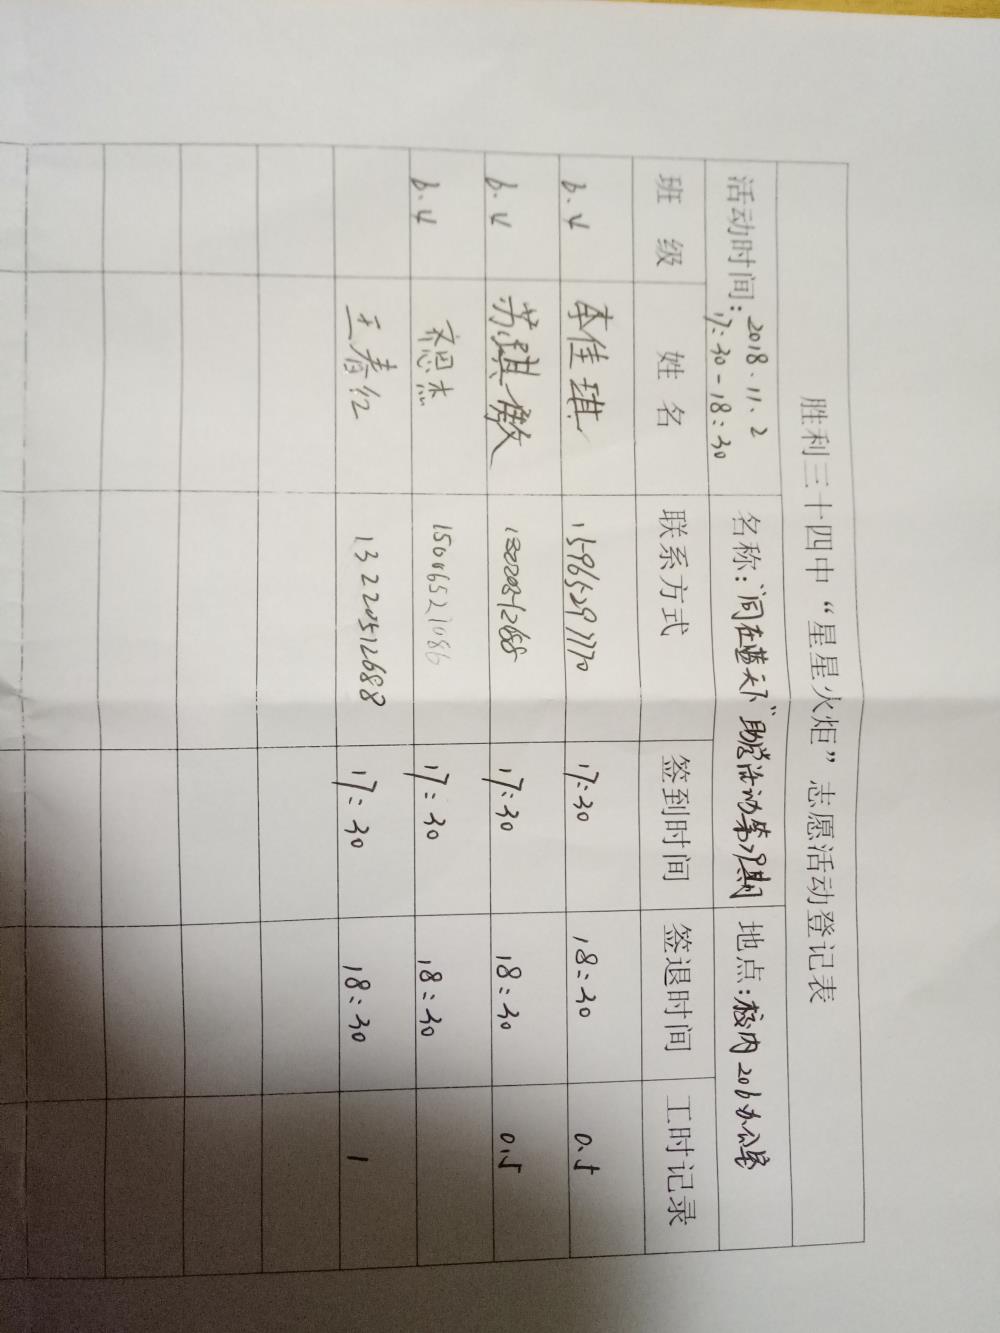 胜利三十四中“星星火炬”志愿活动登记表
活动时间：2018.11.2 17:30-18:30 名称：“同在蓝天下”助学活动第9期 地点：校内206办公室
班 级 姓 名 联系方式 签到时间 签退时间 工时记录
6.4 本佳琪 15965297770 17:30 18:30 0.5
6.4 苏琪傲 17:30 18:30 0.5
6.4 齐思杰 15006521086 17:30 18:30
王春红 13220512688 17:30 18:30 1